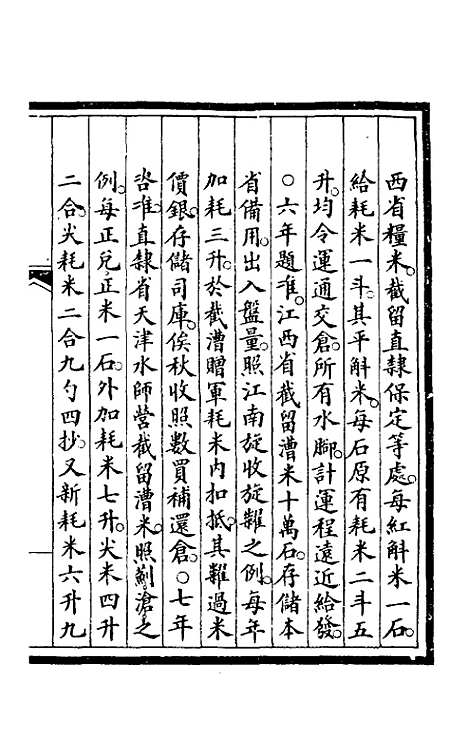 西省糧米。截留直隸保定等處。每紅斛米一石。
給耗米一斗。其平斛米。每石原有耗米二斗五
升。均令運通交倉。所有水腳。計運程遠近給發。
○六年題准。江西省截留漕米十萬石。存儲本
省備用。出入盤量。照江南旋收旋糶之例。每年
加耗三升。於截漕贈軍耗米內扣抵。其糶過米
價銀。存儲司庫。俟秋收照數買補還倉。○七年
咨准。直隸省天津水師營截留漕米。照薊滄之
例。每正兌正米一石。外加耗米七升。尖米四升
二合。尖耗米二合九勺四抄。又新耗米六升九